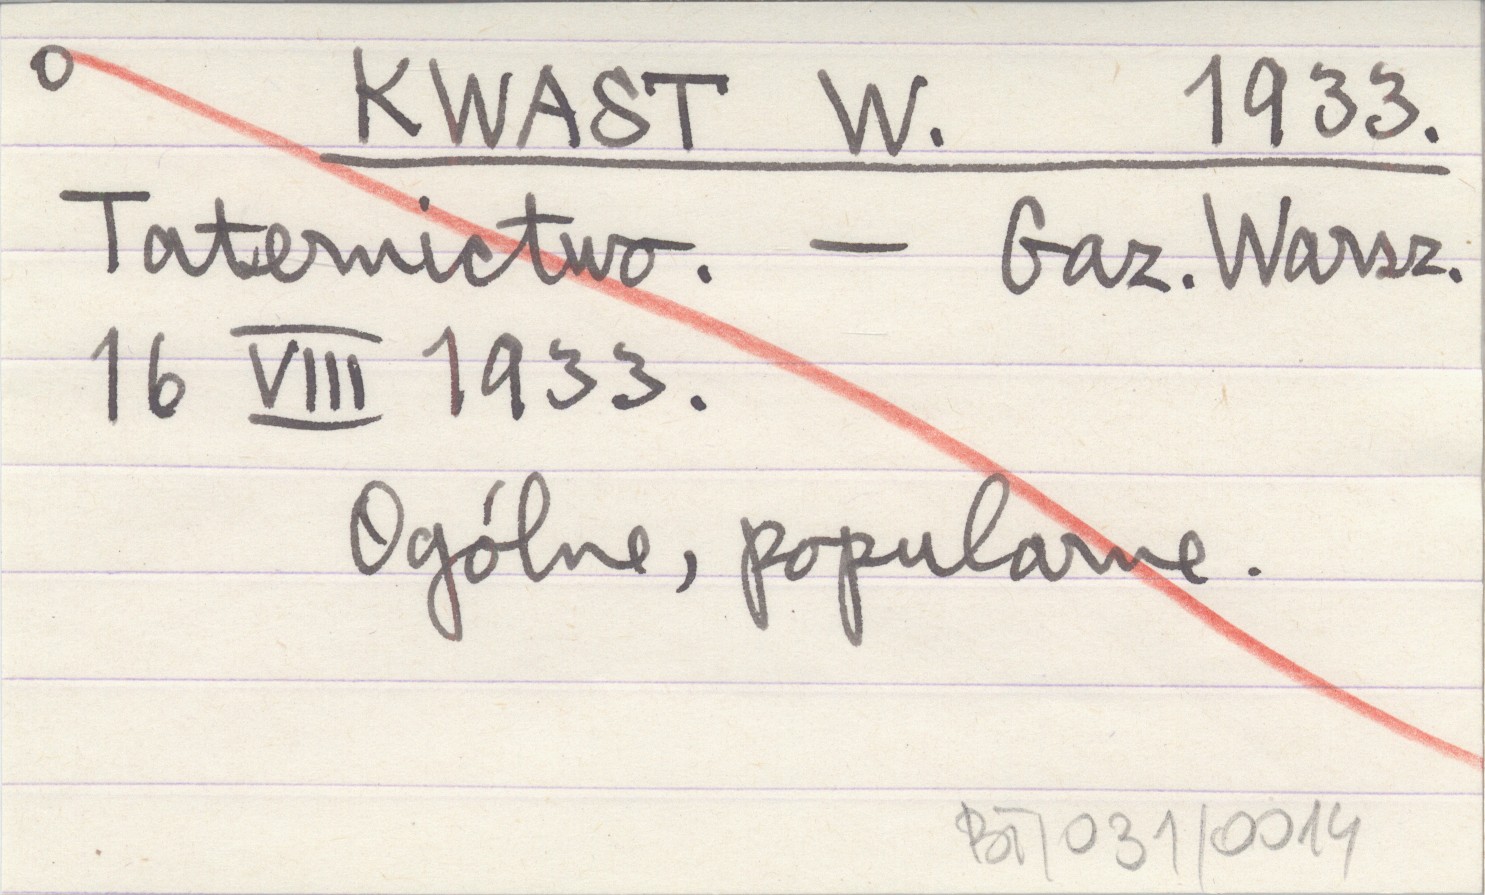 O KWAST W. 1933.
Taternictwo. — Gaz. Warsz.
16 VIII 1933.
Ogólne, popularne.
BT/031/0014